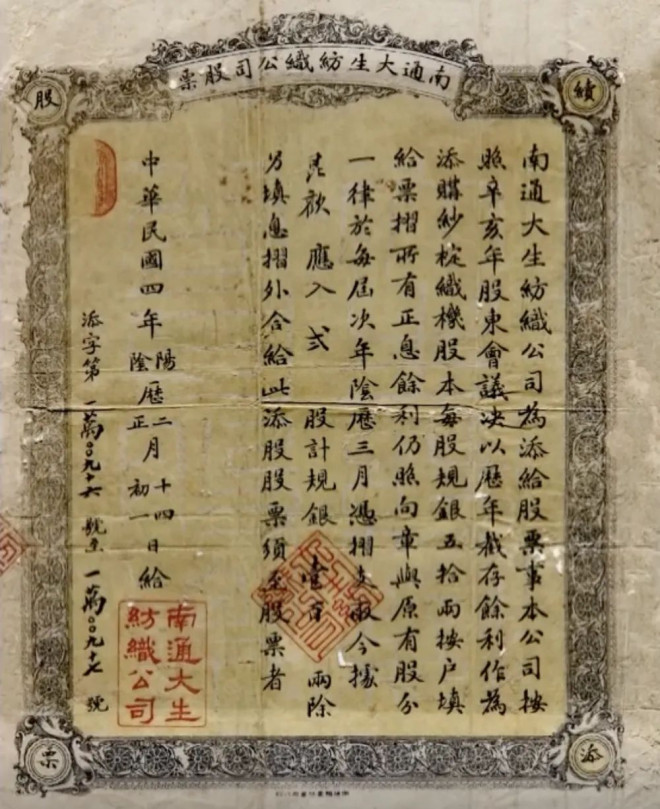 南通大生紡織公司股票
續
股
南通大生紡織公司為添給股票事本公司按
照辛亥年股東會議决以歷年截存餘利作為
添購紗椗織機股本每股規銀五拾兩按户填
給票摺所有正息餘利仍照向章與原有股分
一律於每屆次年陰歷三月憑摺支取今據
應入弍股計規銀壹百兩除
另填息摺外合給此添股股票須至股票者
中華民國四年陽陰歷二正月十四初一日給
添字第一萬〇〇九十六號至一萬〇〇九十七號
南通大生
紡織公司
添
票